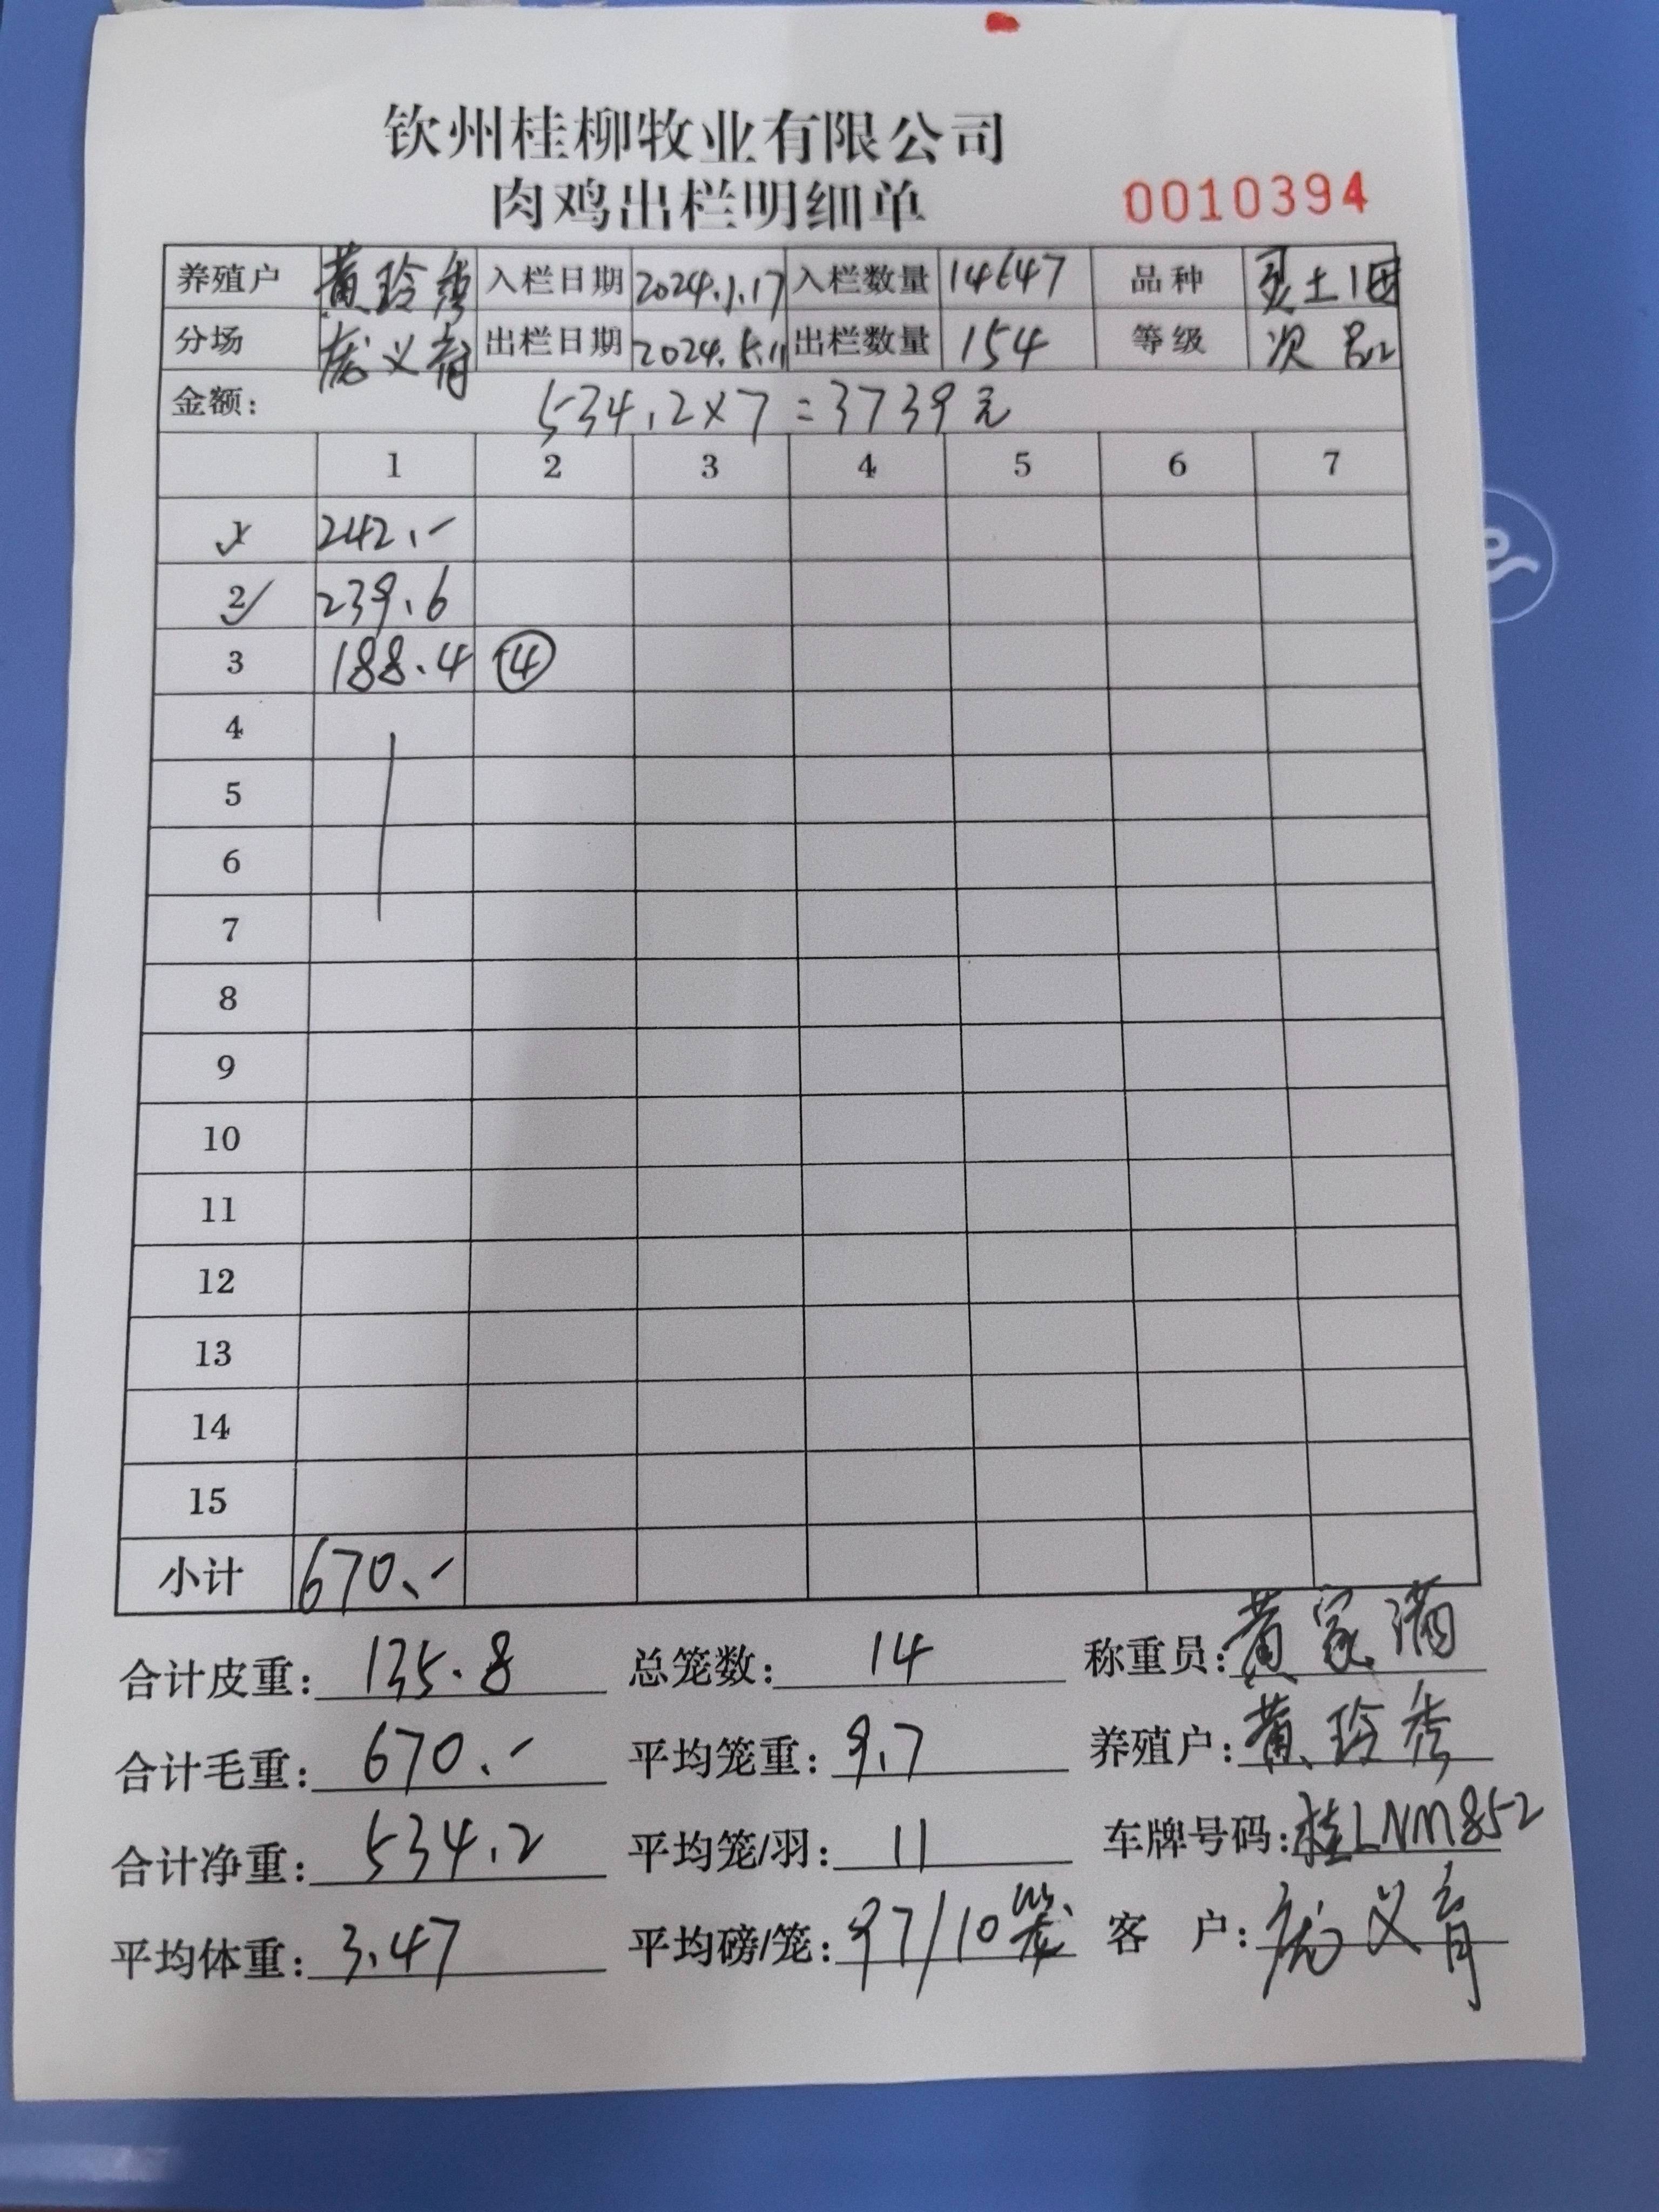 钦州桂柳牧业有限公司
肉鸡出栏明细单 0010394
养殖户 黄玲秀 入栏日期 2024.1.17 入栏数量 14647 品种 灵土1
分场 义育 出栏日期 2024.5.11 出栏数量 154 等级 次品
金额: 534.2×7=3739元
1 2 3 4 5 6 7
1 242.-
2 239.6
3 188.4 ④
4
5
6
7
8
9
10
11
12
13
14
15
小计 670.-
合计皮重: 135.8 总笼数: 14 称重员: 黄家满
合计毛重: 670.- 平均笼重: 9.7 养殖户: 黄玲秀
合计净重: 534.2 平均笼/羽: 11 车牌号码: 桂LNM852
平均体重: 3.47 平均磅/笼: 97/10笼 客户: 义育